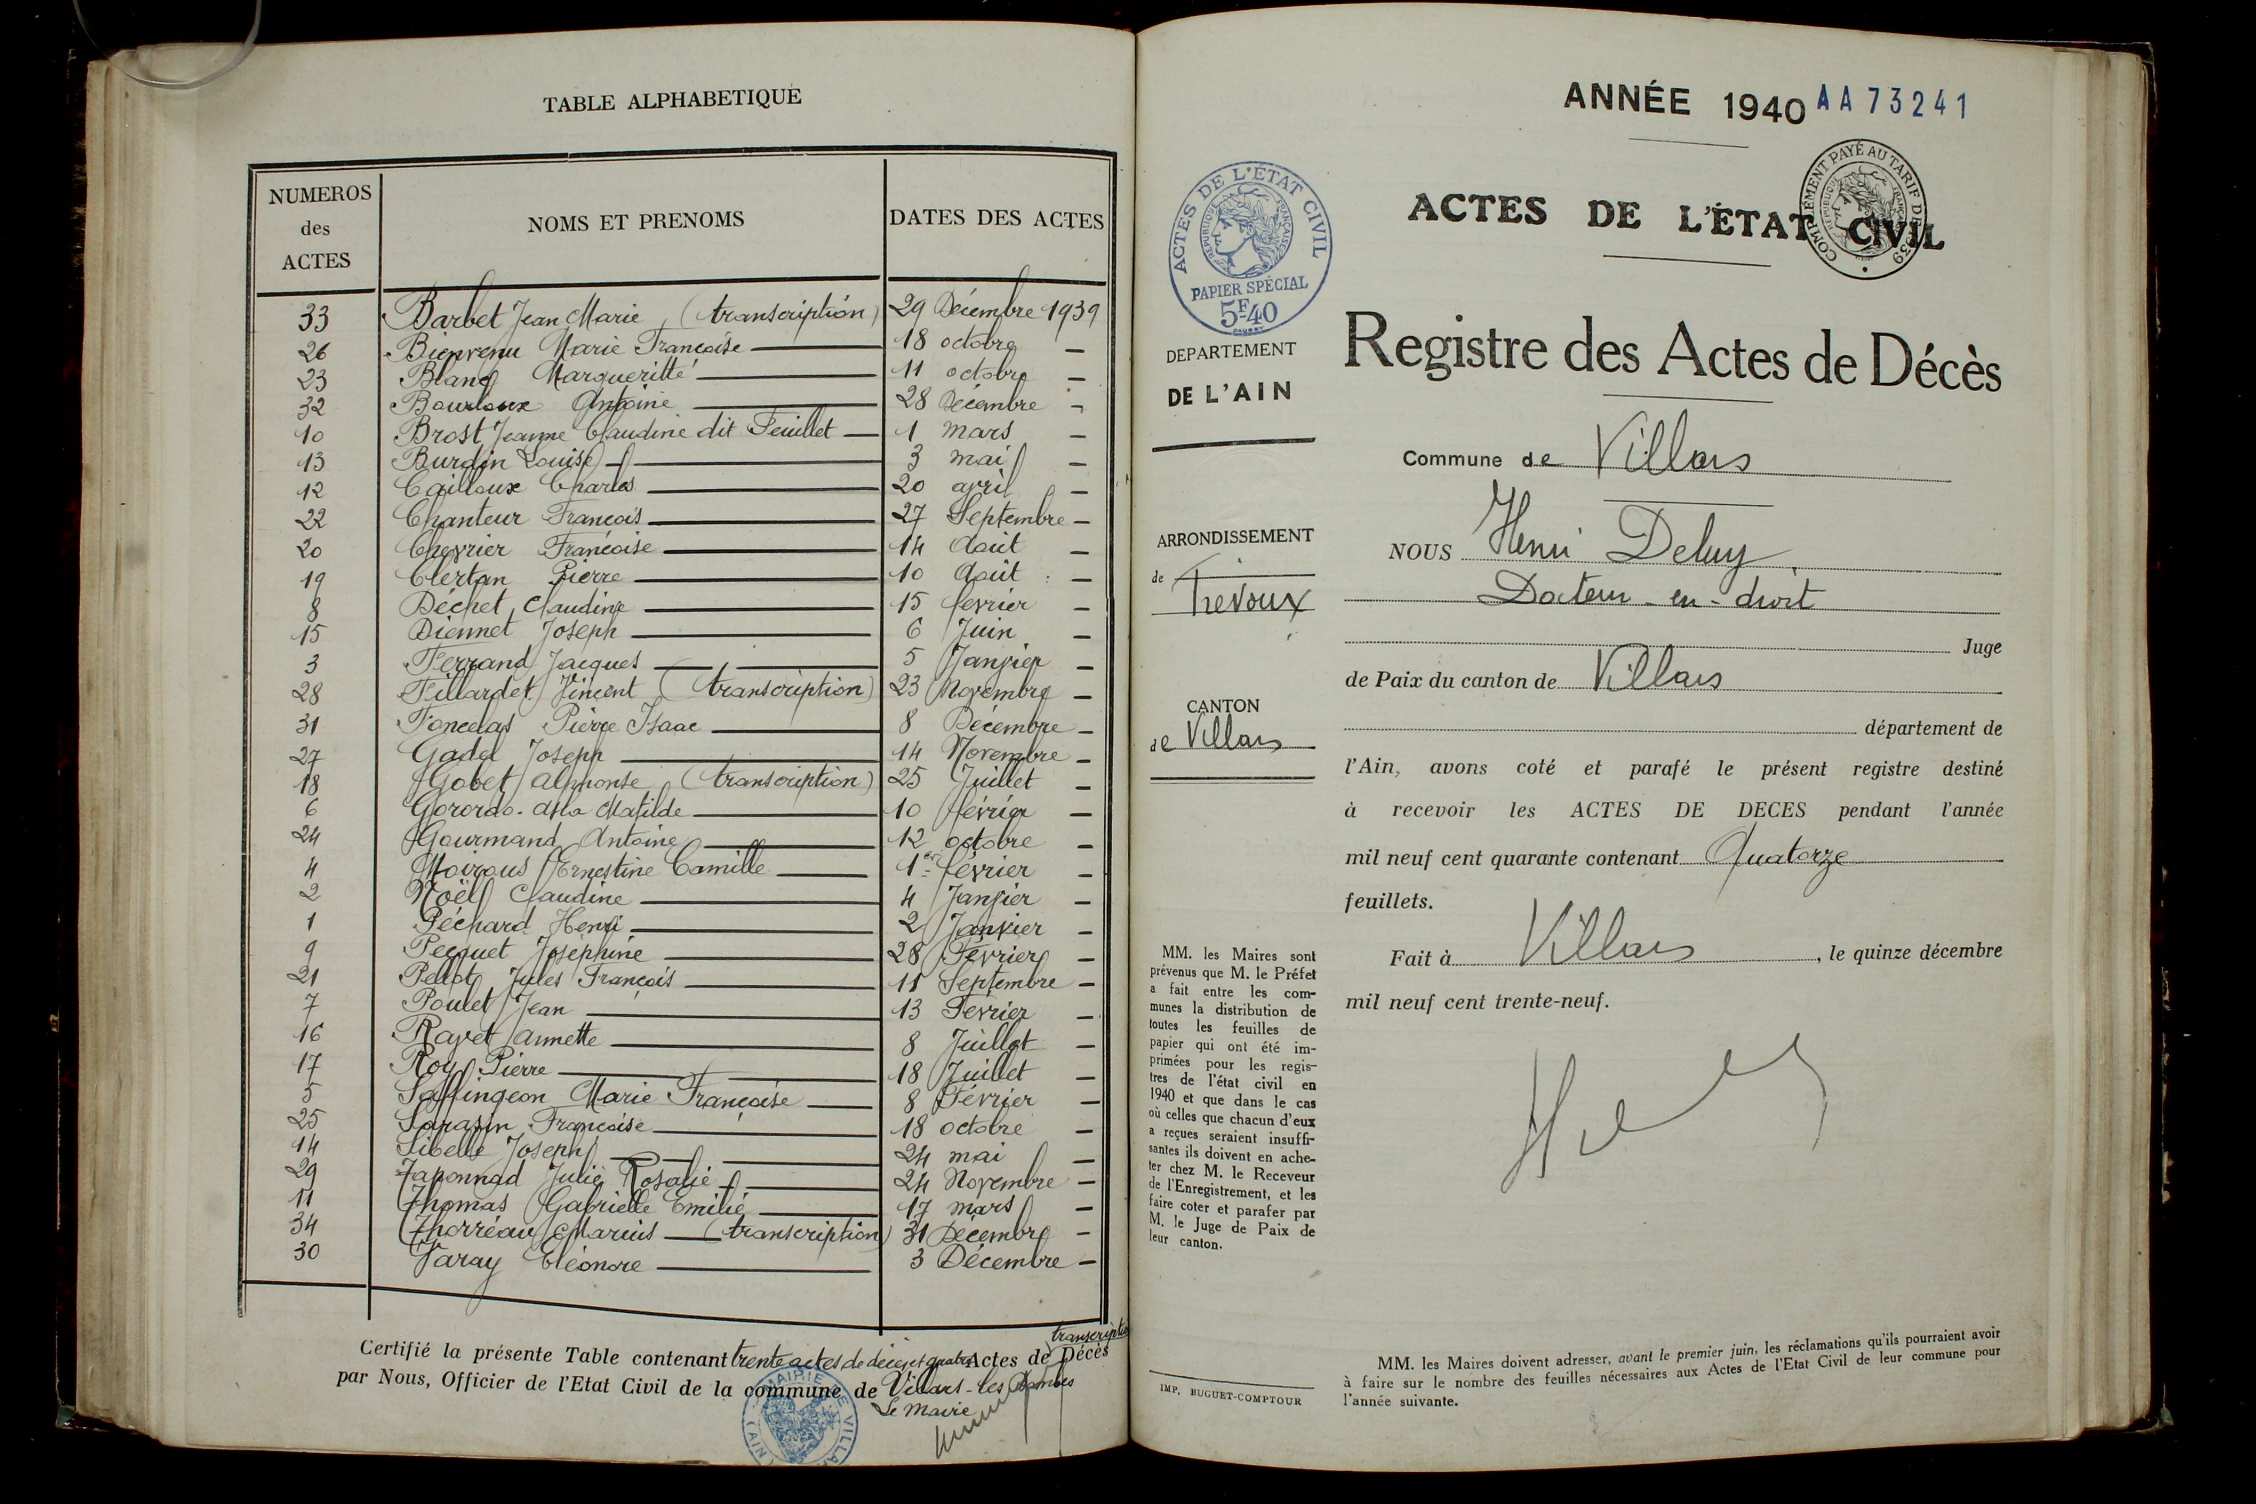 TABLE ALPHABETIQUE
NUMEROS des ACTES NOMS ET PRENOMS DATES DES ACTES
33 Barbet Jean Marie (transcription) 29 Décembre 1939
26 Bienvenu Marie Françoise 18 octobre —
23 Blanc Marguerite 11 octobre —
32 Bourloux Antoine 28 Décembre —
10 Brost Jeanne Claudine dit Feuillet 1 mars —
13 Burdin Louise 3 mai —
12 Cailloux Charles 20 avril —
22 Chanteur François 27 Septembre —
20 Chevrier Françoise 14 Août —
19 Clertan Pierre 10 Août —
8 Déchet Claudine 15 fevrier —
15 Diennet Joseph 6 Juin —
3 Ferrand Jacques 5 Janvier —
28 Fillardet Vincent (transcription) 23 Novembre —
31 Foncelas Pierre Isaac 8 Décembre —
27 Gadel Joseph 14 Novembre —
18 Gobet Alphonse (transcription) 25 Juillet —
6 Gorordo Matilde 10 février —
24 Gourmand Antoine 12 octobre —
4 Moirous Ernestine Camille 1er février —
2 Noël Claudine 4 Janvier —
1 Péchard Henri 2 Janvier —
9 Pecquet Joséphine 28 Février —
21 Pellot Jules François 11 Septembre —
7 Poulet Jean 13 Février —
16 Ravet Annette 8 Juillet —
17 Roy Pierre 18 Juillet —
5 Saffingeon Marie Françoise 8 Février —
25 Sarasin Françoise 18 octobre —
14 Sibelle Joseph 24 mai —
29 Taponnad Julie Rosalie 24 Novembre —
11 Thomas Gabrielle Emilie 17 mars —
34 Thorréau Marius (transcription) 31 Décembre —
30 Varay Eléonore 3 Décembre —
transcription
Certifié la présente Table contenant trente actes de décès et quatre Actes de Décès
par Nous, Officier de l'Etat Civil de la commune de Villars-les Dombes
Le Maire
MAIRIE DE VILLARS (AIN)
ANNÉE 1940 AA 73241
ACTES DE L'ÉTAT CIVIL
COMPLÉMENT PAYÉ AU TARIF DE 1939
RÉPUBLIQUE FRANÇAISE
ACTES DE L'ÉTAT CIVIL
RÉPUBLIQUE FRANÇAISE
PAPIER SPÉCIAL
5F40
DEPARTEMENT
DE L'AIN
ARRONDISSEMENT
de Trévoux
CANTON
de Villars
MM. les Maires sont
prévenus que M. le Préfet
a fait entre les com-
munes la distribution de
toutes les feuilles de
papier qui ont été im-
primées pour les regis-
tres de l'état civil en
1940 et que dans le cas
où celles que chacun d'eux
a reçues seraient insuffi-
santes ils doivent en ache-
ter chez M. le Receveur
de l'Enregistrement, et les
faire coter et parafer par
M. le Juge de Paix de
leur canton.
IMP. BUGUET-COMPTOUR
Registre des Actes de Décès
Commune de Villars
NOUS Henri Deluy,
Docteur-en-droit
Juge
de Paix du canton de Villars
département de
l'Ain, avons coté et parafé le présent registre destiné
à recevoir les ACTES DE DECES pendant l'année
mil neuf cent quarante contenant Quatorze
feuillets.
Fait à Villars, le quinze décembre
mil neuf cent trente-neuf.
MM. les Maires doivent adresser, avant le premier juin, les réclamations qu'ils pourraient avoir
à faire sur le nombre des feuilles nécessaires aux Actes de l'Etat Civil de leur commune pour
l'année suivante.